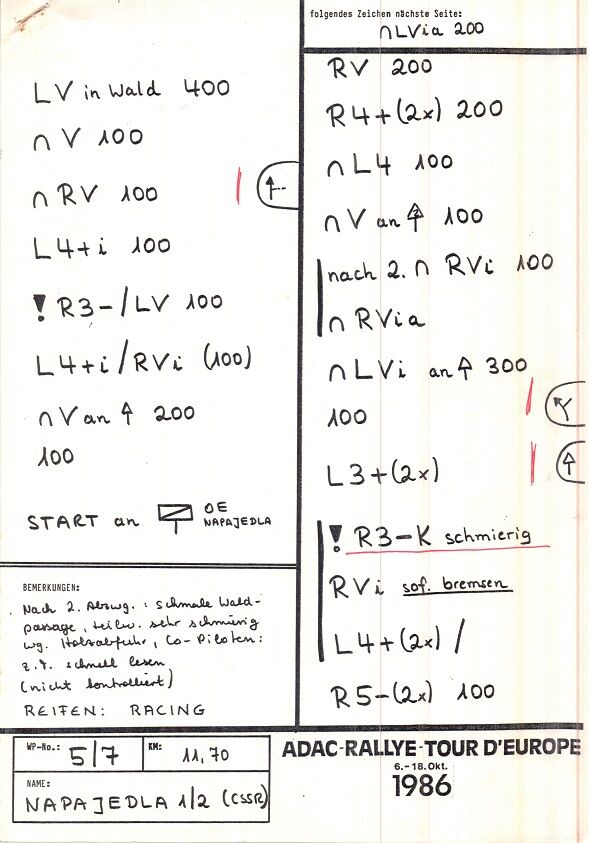 LV in Wald 400
∩ V 100
∩ RV 100
L4+i 100
! R3-/LV 100
L4+i/RVi (100)
∩ V an ↑ 200
100
START an OE
NAPAJEDLA
BEMERKUNGEN:
Nach 2. Abzwg.: schmale Wald-
passage, teilw. sehr schmierig
wg. Holzabfuhr, Co-Piloten:
z.T. schnell lesen
(nicht kontrolliert)
REIFEN: RACING
folgendes Zeichen nächste Seite:
∩LVia 200
RV 200
R4+(2x) 200
∩ L4 100
∩ V an ↑ 100
nach 2. ∩ RVi 100
∩ RVia
∩ LVi an ↑ 300
100
L3+(2x)
! R3-K schmierig
RVi sof. bremsen
L4+(2x) /
R5-(2x) 100
WP-No.: 5/7 KM: 11,70
NAME:
NAPAJEDLA 1/2 (CSSR)
ADAC-RALLYE-TOUR D'EUROPE
6.-18. Okt.
1986